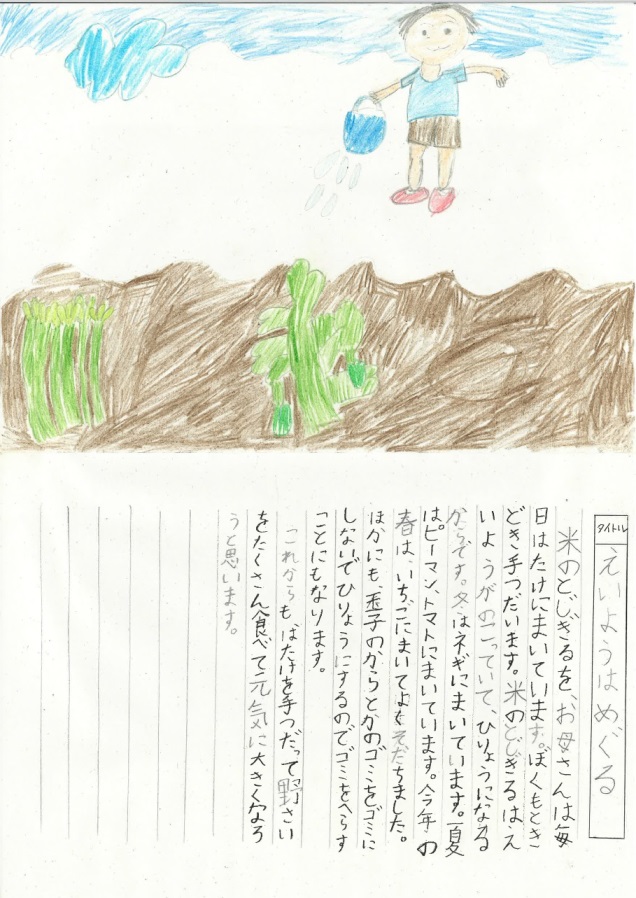 タイトル
えいようはめぐる
米のとじぎるを、お母さんは毎
日はたけにまいています。ぼくもときど
どき手つだいます。米のとじぎるはえ
いようがのこっていて、ひりょうになる
からです。冬はネギにまいています。夏
はピーマン、トマトにまいています。今年の
春は、いちごにまいてよくそだちました。
ほかにも、玉子のからとかのゴミをゴミに
しないでひりょうにするのでゴミをへらす
ことにもなります。
これからも、はたけを手つだって野さい
をたくさん食べて元気に大きくなろ
うと思います。